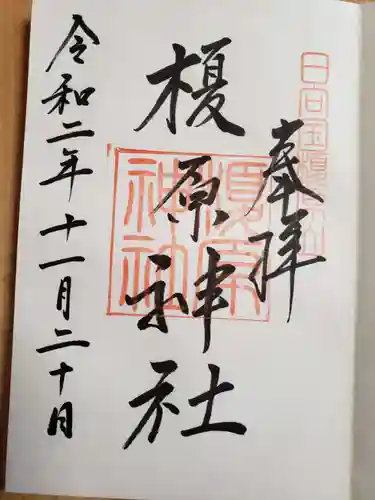 奉拝
日向国榎原鎮座
榎原神社
榎原神社
令和二年十一月二十日